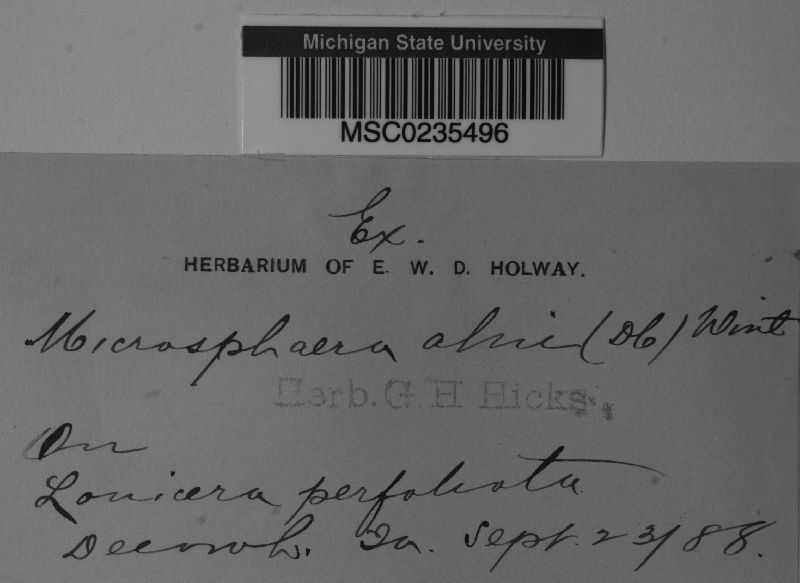 Michigan State University
MSC0235496
Ex.
HERBARIUM OF E. W. D. HOLWAY.
Microsphaera alni (Db) Wint
Herb. G H Hicks.
On
Lonicera perfoliata
Decorah. Ia. Sept. 23/88.